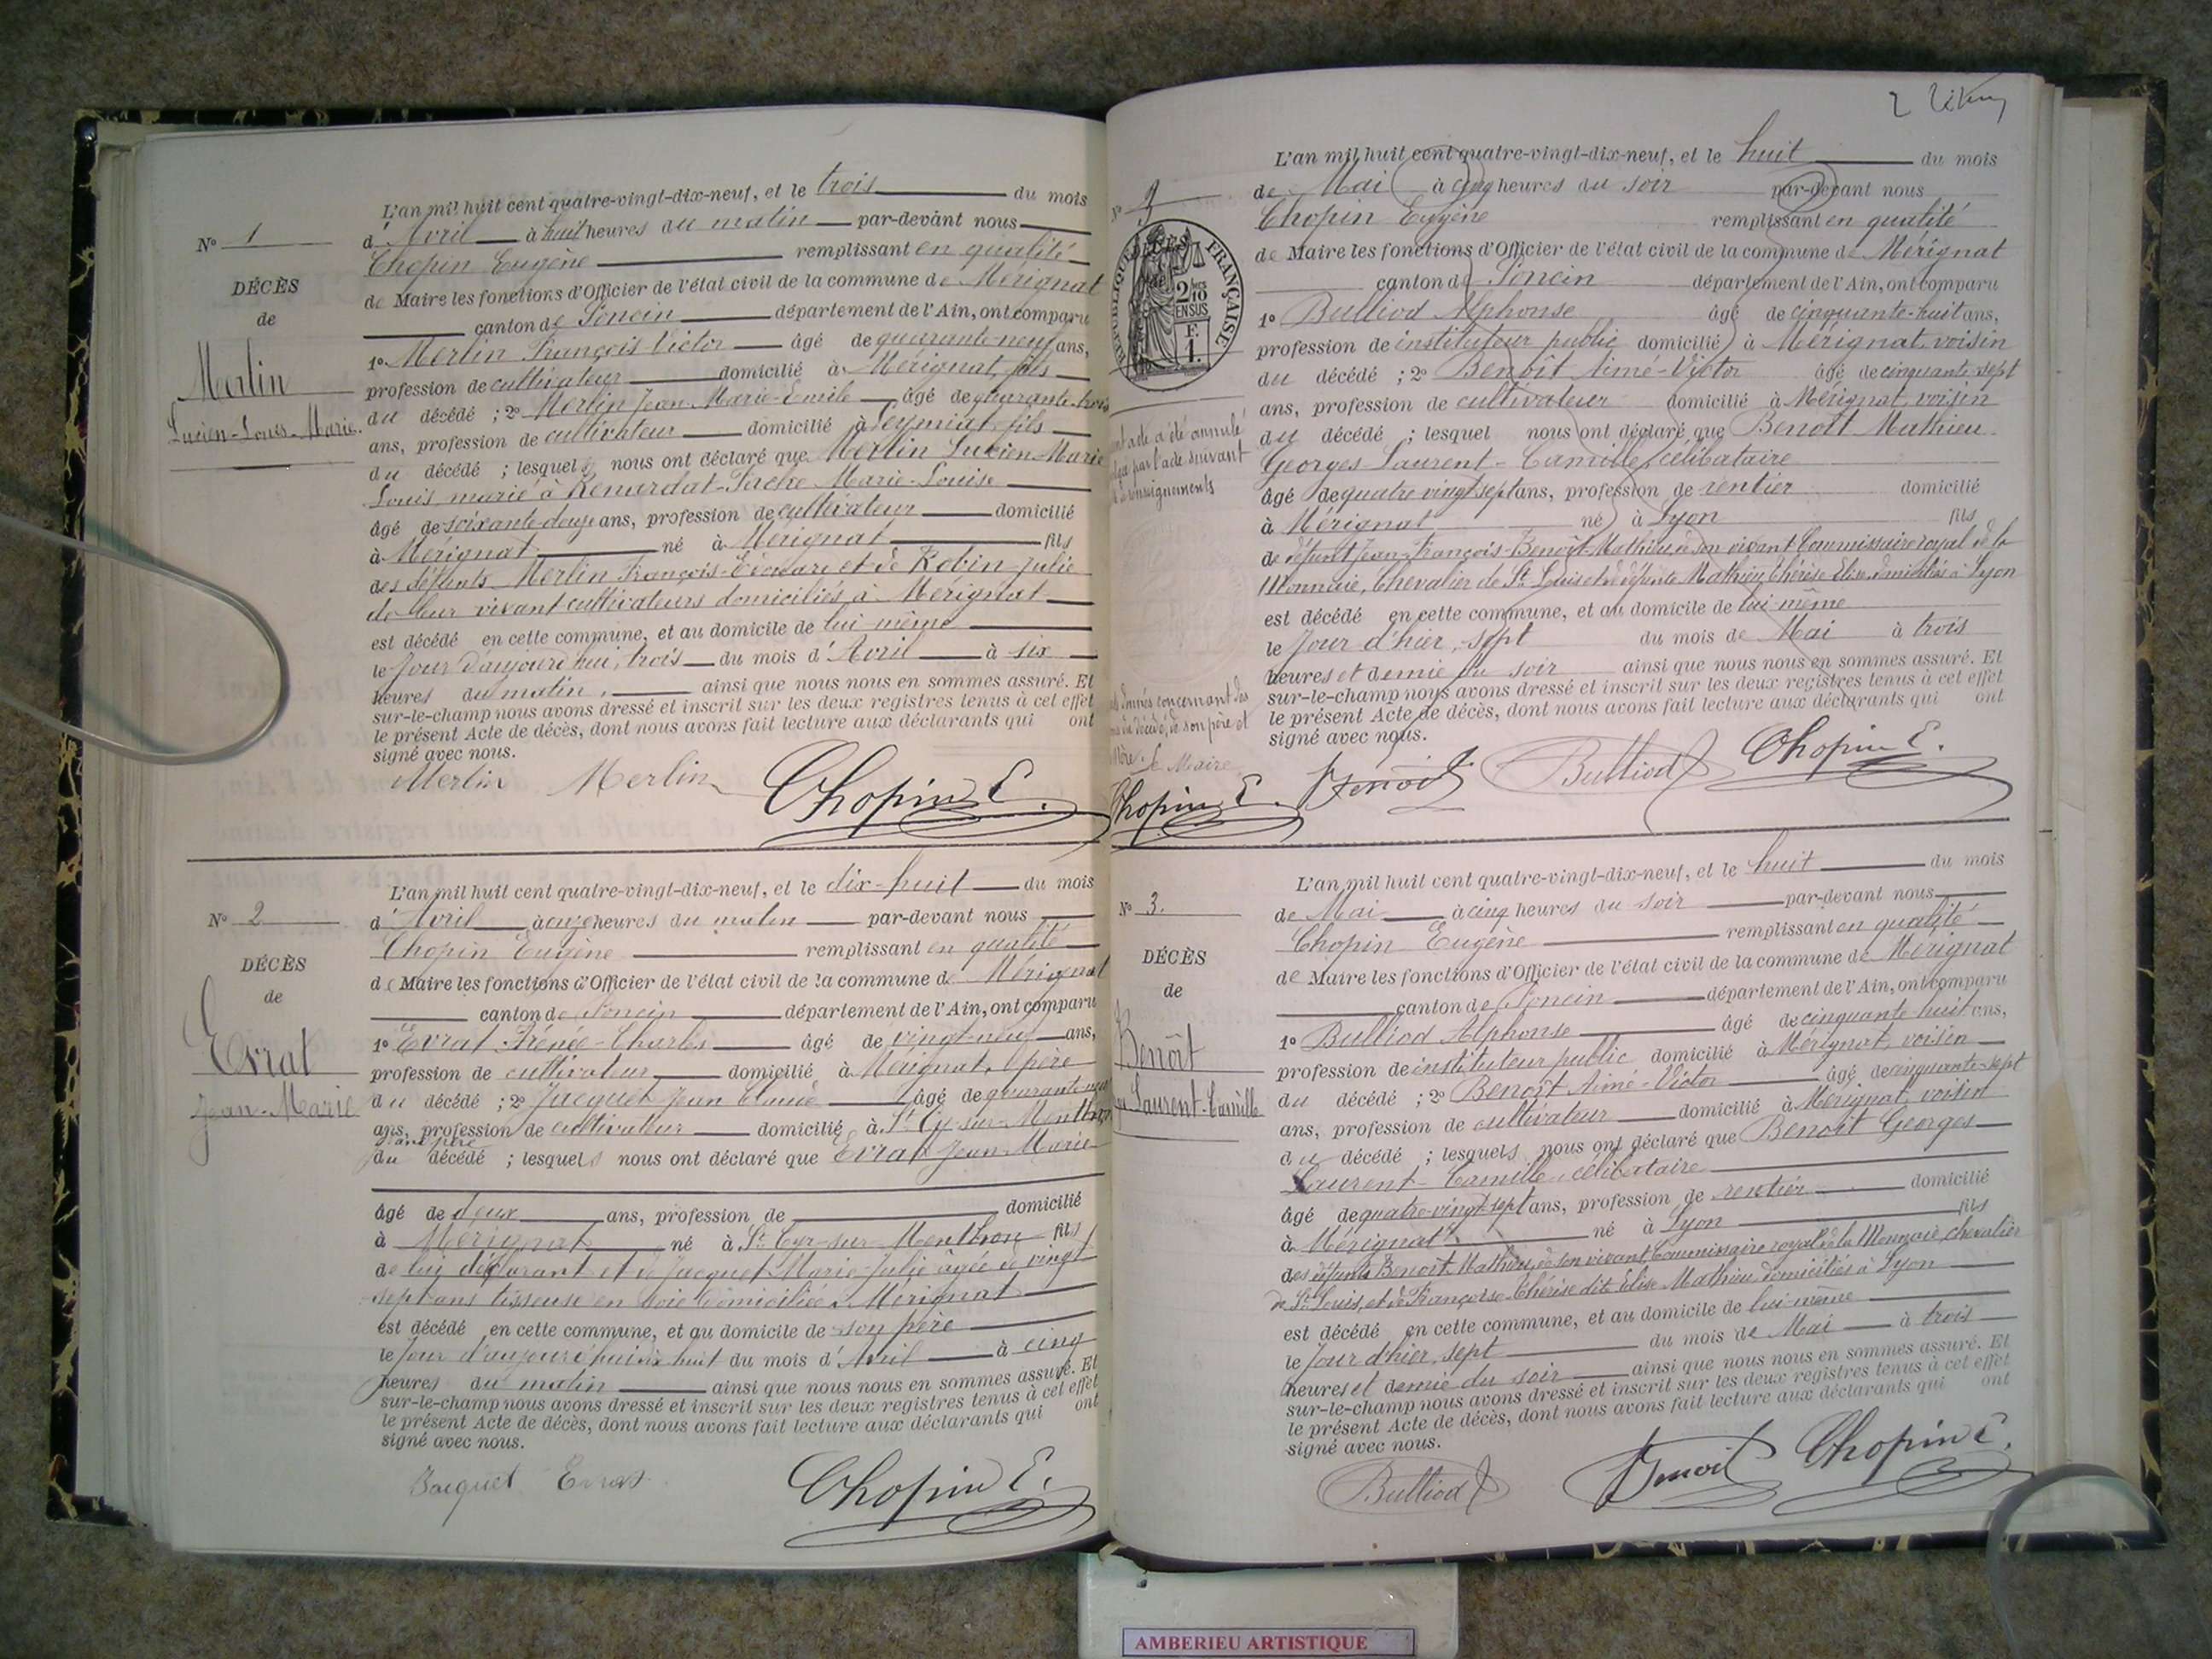 N° 1
DÉCÈS
de
Merlin
Lucien-Louis-Marie.
L'an mil huit cent quatre-vingt-dix-neuf, et le trois du mois
d'Avril à huit heures du matin par-devant nous
Chopin Eugène remplissant en qualité
de Maire les fonctions d'Officier de l'état civil de la commune de Mérignat
canton de Poncin département de l'Ain, ont comparu
1° Merlin François Victor âgé de quarante-neuf ans,
profession de cultivateur domicilié à Mérignat, fils
du décédé ; 2° Merlin Jean-Marie-Emile âgé de quarante-trois
ans, profession de cultivateur domicilié à Leymiat, fils
du décédé ; lesquels nous ont déclaré que Merlin Lucien-Marie
Louis, marié à Renardat-Fache Marie-Louise
âgé de soixante-douze ans, profession de cultivateur domicilié
à Mérignat né à Mérignat fils
des défunts Merlin François-Edouard et de Robin Julie
de leur vivant cultivateurs domiciliés à Mérignat
est décédé en cette commune, et au domicile de lui même
le jour d'aujourd'hui, trois du mois d'Avril à six
heures du matin, ainsi que nous nous en sommes assuré. Et
sur-le-champ nous avons dressé et inscrit sur les deux registres tenus à cet effet
le présent Acte de décès, dont nous avons fait lecture aux déclarants qui ont
signé avec nous.
Merlin Merlin Chopin E.
N° 2
DÉCÈS
de
Evrat
Jean-Marie
L'an mil huit cent quatre-vingt-dix-neuf, et le dix-huit du mois
d'Avril à onze heures du matin par-devant nous
Chopin Eugène remplissant en qualité
de Maire les fonctions d'Officier de l'état civil de la commune de Mérignat
canton de Poncin département de l'Ain, ont comparu
1° Evrat Irénée-Charles âgé de vingt-neuf ans,
profession de cultivateur domicilié à Mérignat, père
du décédé ; 2° Jacquet Jean Claude âgé de quarante-neuf
ans, profession de cultivateur domicilié à St Cyr-sur-Menthon
grand père
du décédé ; lesquels nous ont déclaré que Evrat Jean-Marie
âgé de deux ans, profession de domicilié
à Mérignat né à St Cyr-sur-Menthon fils
de lui déclarant et de Jacquet Marie-Julie âgée de vingt
sept ans tisseuse en soie domiciliée à Mérignat
est décédé en cette commune, et au domicile de son père
le jour d'aujourd'hui dix huit du mois d'Avril à cinq
heures du matin ainsi que nous nous en sommes assuré. Et
sur-le-champ nous avons dressé et inscrit sur les deux registres tenus à cet effet
le présent Acte de décès, dont nous avons fait lecture aux déclarants qui ont
signé avec nous.
Jacquet Evrat Chopin E.
2
N° 3
DÉCÈS
RÉPUBLIQUE FRANÇAISE
2/10 EN SUS
F. 1.
acte a été annulé
par l'acte suivant
renseignements
donnés concernant les
du décédé, de son père et
Mère. Le Maire
Chopin E.
L'an mil huit cent quatre-vingt-dix-neuf, et le huit du mois
de Mai à cinq heures du soir par-devant nous
Chopin Eugène remplissant en qualité
de Maire les fonctions d'Officier de l'état civil de la commune de Mérignat
canton de Poncin département de l'Ain, ont comparu
1° Bulliod Alphonse âgé de cinquante-huit ans,
profession de instituteur public domicilié à Mérignat, voisin
du décédé ; 2° Benoît Aimé-Victor âgé de cinquante-sept
ans, profession de cultivateur domicilié à Mérignat, voisin
du décédé ; lesquel nous ont déclaré que Benoît Mathieu
Georges-Laurent-Camille, célibataire
âgé de quatre vingt sept ans, profession de rentier domicilié
à Mérignat né à Lyon fils
de défunt Jean-François-Benoît-Mathieu, de son vivant Commissaire royal de la
Monnaie, Chevalier de St Louis et de défunte Mathieu Thérèse Elise domiciliés à Lyon
est décédé en cette commune, et au domicile de lui même
le jour d'hier, sept du mois de Mai à trois
heures et demie du soir ainsi que nous nous en sommes assuré. Et
sur-le-champ nous avons dressé et inscrit sur les deux registres tenus à cet effet
le présent Acte de décès, dont nous avons fait lecture aux déclarants qui ont
signé avec nous.
Benoit Bulliod Chopin E.
N° 3.
DÉCÈS
de
Benoît
Laurent-Camille
L'an mil huit cent quatre-vingt-dix-neuf, et le huit du mois
de Mai à cinq heures du soir par-devant nous
Chopin Eugène remplissant en qualité
de Maire les fonctions d'Officier de l'état civil de la commune de Mérignat
canton de Poncin département de l'Ain, ont comparu
1° Bulliod Alphonse âgé de cinquante huit ans,
profession de instituteur public domicilié à Mérignat, voisin
du décédé ; 2° Benoît Aimé-Victor âgé de cinquante-sept
ans, profession de cultivateur domicilié à Mérignat, voisin
du décédé ; lesquels nous ont déclaré que Benoît Georges
Laurent-Camille, célibataire
âgé de quatre-vingt-sept ans, profession de rentier domicilié
à Mérignat né à Lyon fils
des défunts Benoît Mathieu, de son vivant Commissaire royal de la Monnaie, chevalier
de St Louis, et de Françoise-Thérèse dite Elise Mathieu domiciliés à Lyon
est décédé en cette commune, et au domicile de lui-même
le jour d'hier, sept du mois de Mai à trois
heures et demie du soir ainsi que nous nous en sommes assuré. Et
sur-le-champ nous avons dressé et inscrit sur les deux registres tenus à cet effet
le présent Acte de décès, dont nous avons fait lecture aux déclarants qui ont
signé avec nous.
Bulliod Benoit Chopin E.
AMBERIEU ARTISTIQUE